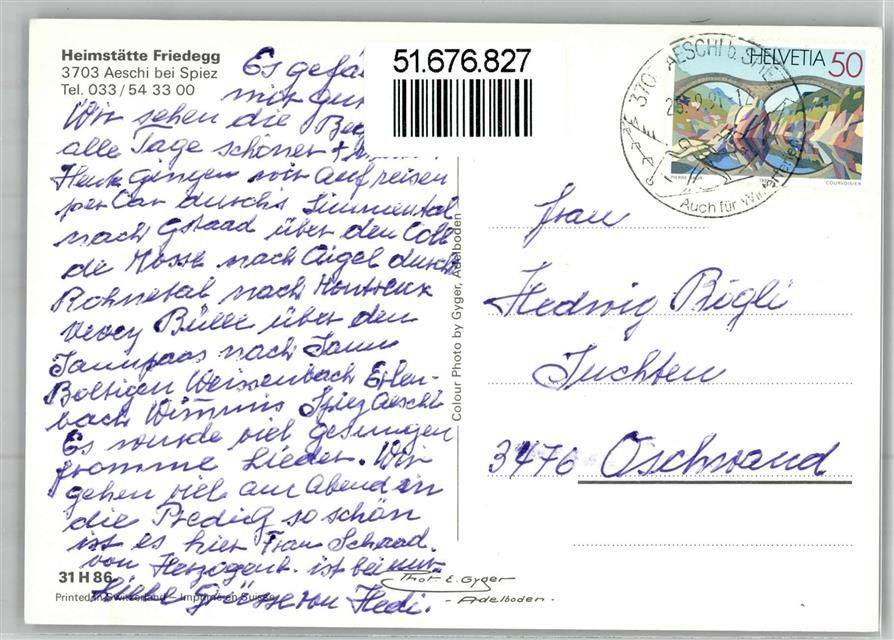 Heimstätte Friedegg
3703 Aeschi bei Spiez
Tel. 033/54 33 00
51.676.827
Es gefä
mir gu
Wir sehen die Be
alle Tage schöner +
Heute gingen wir auf reisen
per Car durchs Simmental
nach Gstaad über den Coll
de Mosse nach Aigel durch
Rohnetal nach Montreux
Vevey Bülle über den
Jaunpass nach Jaun
Boltigen Weissenbach Erlen-
bach Wimmis Spiez Aeschi
Es wurde viel gesungen
fromme Lieder. Wir
gehen viel am Abend in
die Predig so schön
ist es hier Frau Schaad.
von Herzogenb. ist bei mir
Liebe Grüsse von Hedi.
31 H 86
Printed in Switzerland – Imprimé en Suisse
Colour Photo by Gyger, Adelboden
Phot. E. Gyger
- Adelboden -
3703 AESCHI b. SPIEZ
Auch für Wi
HELVETIA 50
COURVOISIER
Frau
Hedwig Bögli
Juchten
3476 Oschwand